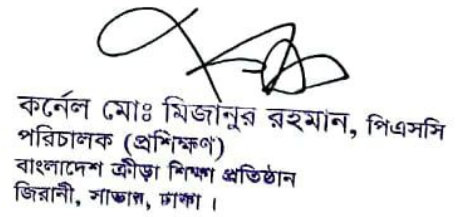 কর্নেল মোঃ মিজানুর রহমান, পিএসসি
পরিচালক (প্রশিক্ষণ)
বাংলাদেশ ক্রীড়া শিক্ষা প্রতিষ্ঠান
জিরানী, সাভার, ঢাকা ।